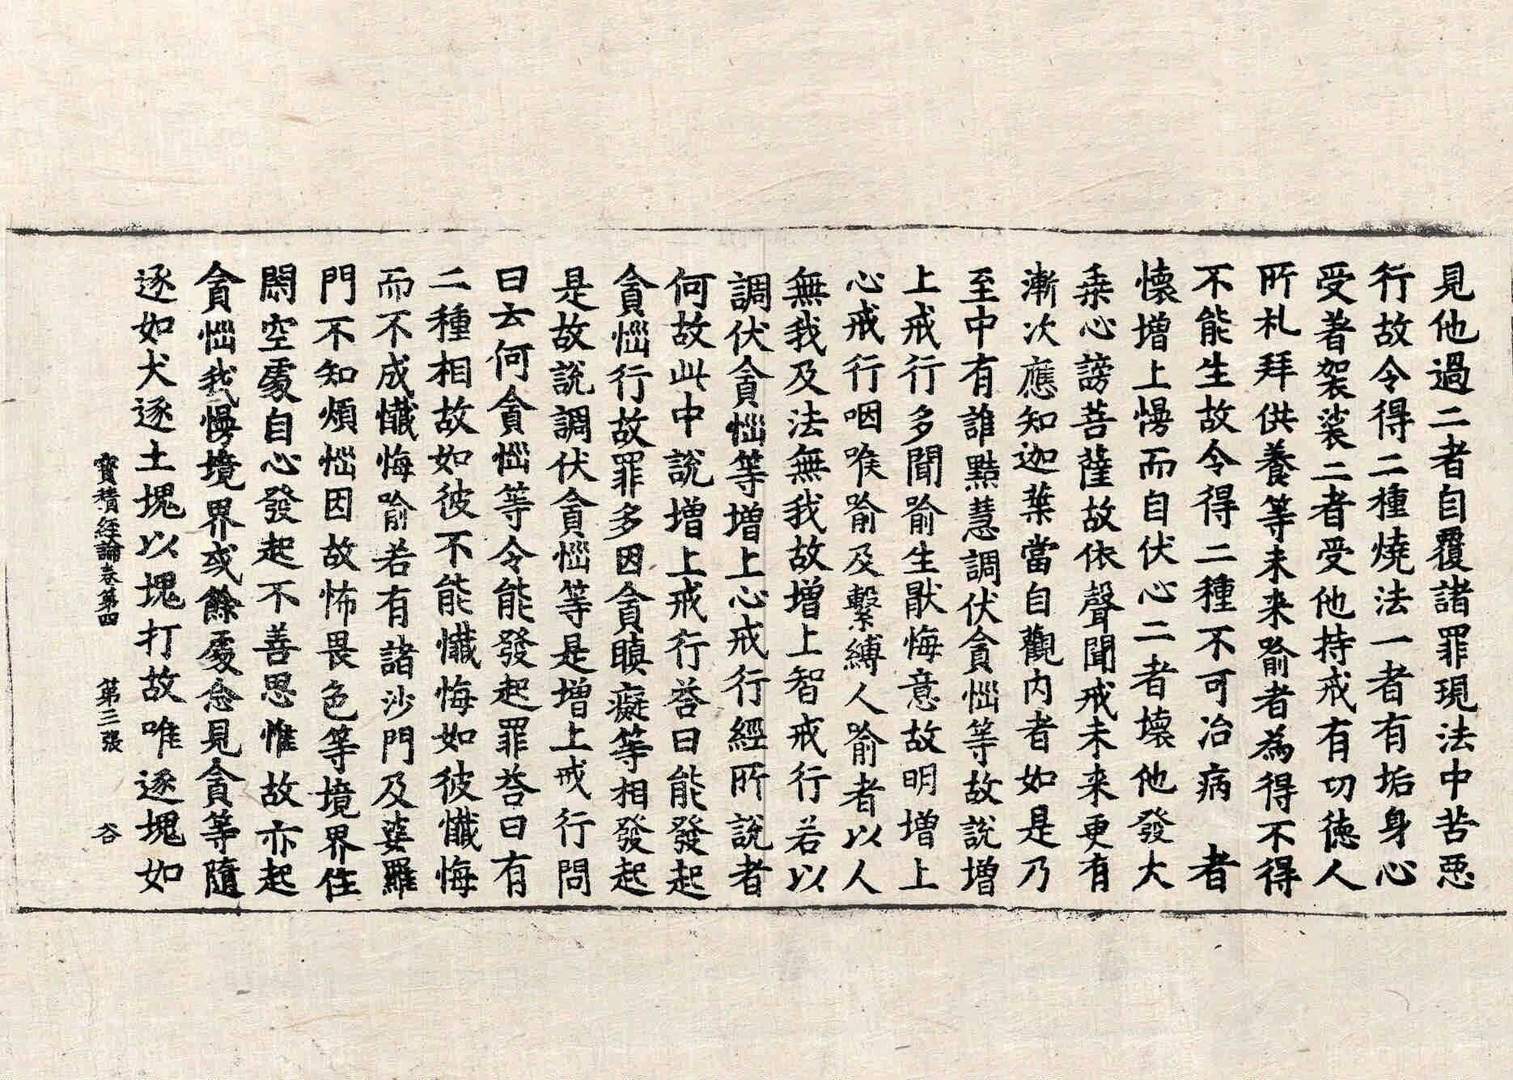 見他過二者自覆諸罪現法中苦惡
行故令得二種燒法一者有垢身心
受著袈裟二者受他持戒有切德人
所札拜供養等未来喻者為得不得
不能生故令得二種不可治病　者
懐增上慢而自伏心二者壞他發大
乗心謗菩薩故依聲聞戒未来更有
漸次應知迦葉當自觀內者如是乃
至中有誰黠慧調伏貪惱等故說增
上戒行多聞喻生猒悔意故明增上
心戒行咽喉喻及繫縛人喻者以人
無我及法無我故增上智戒行若以
調伏貪惱等增上心戒行經所說者
何故此中說增上戒行荅曰能發起
貪惱行故罪多因貪瞋癡等相發起
是故說調伏貪惱等是增上戒行問
曰云何貪惱等令能發起罪荅曰有
二種相故如彼不能懺悔如彼懺悔
而不成懺悔喻若有諸沙門及婆羅
門不知煩惱因故怖畏色等境界住
閑空處自心發起不善思惟故亦起
貪惱我慢境界或餘處念見貪等隨
逐如犬逐土塊以塊打故唯逐塊如
寶積經論卷第四　第三張　谷